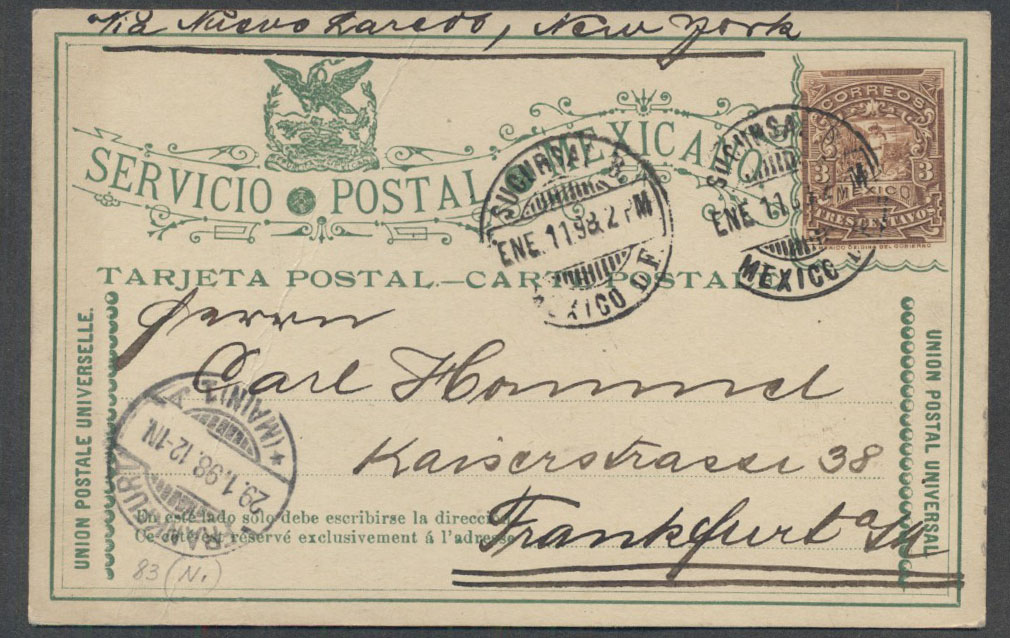 Via Nuevo Laredo, New York
SERVICIO POSTAL MEXICANO
CORREOS
3 3
MEXICO
TRES CENTAVOS
SUCURSAL B.
ENE. 11.98. 2 PM
MEXICO D.F.
SUCURSAL
ENE 11
MEXICO
TARJETA POSTAL.—CARTE POSTALE
UNION POSTALE UNIVERSELLE.
UNION POSTAL UNIVERSAL
Herrn
Carl Hommel
Kaiserstrasse 38
Frankfurt a/M
FRANKFURT
29.1.98.12-1N.
(MAIN) 1
En este lado sólo debe escribirse la dirección
Ce côté est réservé exclusivement á l'adresse
83 (N.)